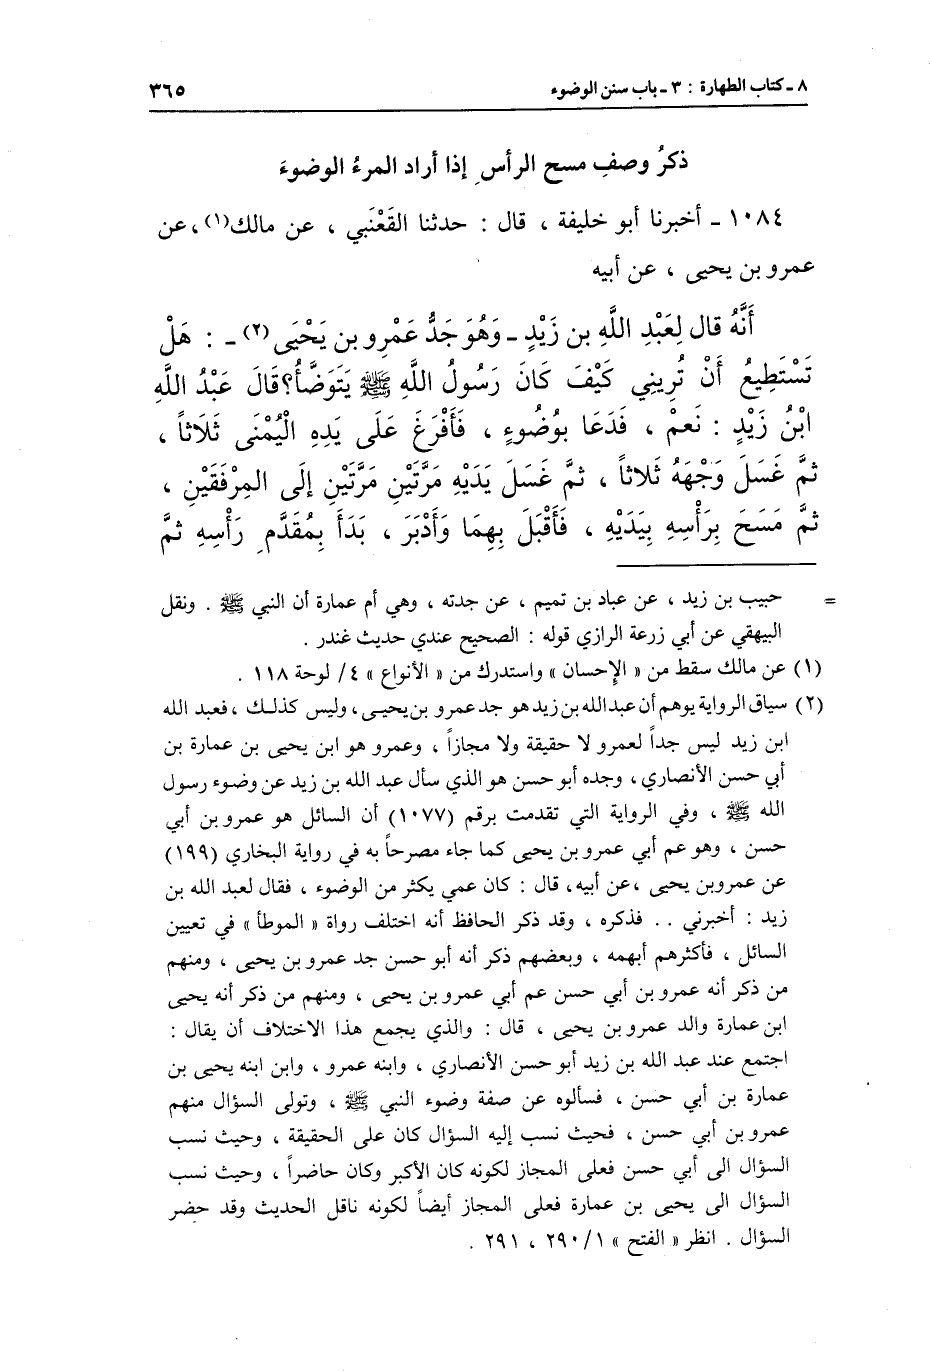 ٨ ـ كتاب الطهارة : ٣ ـ باب سنن الوضوء ٣٦٥
ذكرُ وصفِ مسح الرأسِ إذا أراد المرءُ الوضوءَ
١٠٨٤ ـ أخبرنا أبو خليفة ، قال : حدثنا القَعْنَبي ، عن مالك(١)، عن
عمرو بن يحيى ، عن أبيه
أَنَّهُ قال لِعَبْدِ اللَّهِ بن زَيْدٍ ـ وَهُوَ جَدُّ عَمْرِو بن يَحْيَى (٢) ـ : هَلْ
تَسْتَطِيعُ أَنْ تُرِيني كَيْفَ كانَ رَسُولُ اللَّهِ ﷺ يَتَوَضَّأُ؟ قَالَ عَبْدُ اللَّهِ
ابْنُ زَيْدٍ : نَعمْ ، فَدَعَا بوُضُوءٍ ، فَأَفْرَغَ عَلَى يَدِهِ الْيُمْنَى ثَلَاثاً ،
ثمَّ غَسَلَ وَجْهَهُ ثَلاثاً ، ثمَّ غَسَلَ يَدَيْهِ مَرَّتَيْنِ مَرَّتَيْنِ إلَى المِرْفَقَيْنِ ،
ثمَّ مَسَحَ بِرَأْسِهِ بِيَدَيْهِ ، فَأَقْبَلَ بِهِمَا وَأَدْبَرَ ، بَدَأَ بِمُقَدَّمِ رَأْسِهِ ثمَّ
= حبيب بن زيد ، عن عباد بن تميم ، عن جدته ، وهي أم عمارة أن النبي ﷺ . ونقل
البيهقي عن أبي زرعة الرازي قوله : الصحيح عندي حديث غندر .
(١) عن مالك سقط من « الإحسان » واستدرك من « الأنواع » ٤/ لوحة ١١٨ .
(٢) سياق الرواية يوهم أن عبد الله بن زيد هو جد عمرو بن يحيى ، وليس كذلك ، فعبد الله
ابن زيد ليس جداً لعمرو لا حقيقة ولا مجازاً ، وعمرو هو ابن يحيى بن عمارة بن
أبي حسن الأنصاري ، وجده أبو حسن هو الذي سأل عبد الله بن زيد عن وضوء رسول
الله ﷺ ، وفي الرواية التي تقدمت برقم (١٠٧٧) أن السائل هو عمرو بن أبي
حسن ، وهو عم أبي عمرو بن يحيى كما جاء مصرحاً به في رواية البخاري (١٩٩)
عن عمرو بن يحيى ، عن أبيه ، قال : كان عمي يكثر من الوضوء ، فقال لعبد الله بن
زيد : أخبرني .. فذكره ، وقد ذكر الحافظ أنه اختلف رواة « الموطأ » في تعيين
السائل ، فأكثرهم أبهمه ، وبعضهم ذكر أنه أبو حسن جد عمرو بن يحيى ، ومنهم
من ذكر أنه عمرو بن أبي حسن عم أبي عمرو بن يحيى ، ومنهم من ذكر أنه يحيى
ابن عمارة والد عمرو بن يحيى ، قال : والذي يجمع هذا الاختلاف أن يقال :
اجتمع عند عبد الله بن زيد أبو حسن الأنصاري ، وابنه عمرو ، وابن ابنه يحيى بن
عمارة بن أبي حسن ، فسألوه عن صفة وضوء النبي ﷺ ، وتولى السؤال منهم
عمرو بن أبي حسن ، فحيث نسب إليه السؤال كان على الحقيقة ، وحيث نسب
السؤال الى أبي حسن فعلى المجاز لكونه كان الأكبر وكان حاضراً ، وحيث نسب
السؤال الى يحيى بن عمارة فعلى المجاز أيضاً لكونه ناقل الحديث وقد حضر
السؤال . انظر « الفتح » ٢٩٠/١ ، ٢٩١ .